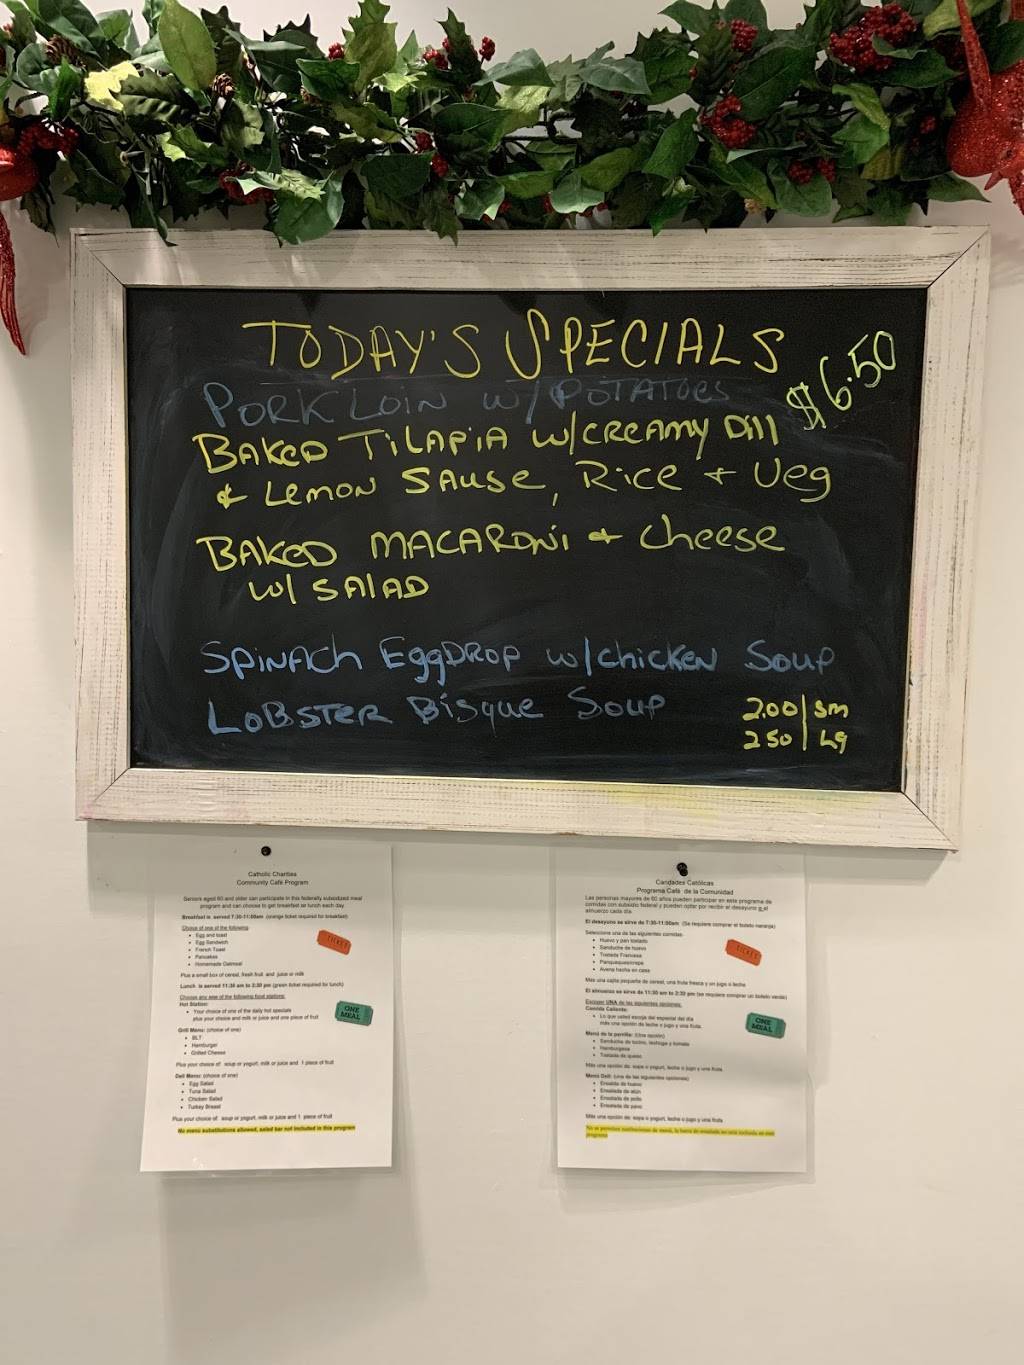 TODAY'S SPECIALS
PORK LOIN W/POTATOES
$6.50
BAKED TILAPIA W/CREAMY Dill
& LEMON SAUSE, Rice + Veg
BAKED MACARONi & Cheese
W/ SALAD
SPINACH EggDROP w/chicken Soup
LOBSTER Bisque Soup
2.00 | sm
250 | Lg
Catholic Charities
Community Café Program
Seniors aged 60 and older can participate in this federally subsidized meal
program and can choose to get breakfast or lunch each day.
Breakfast is served 7:30-11:00am (orange ticket required for breakfast)
Choice of one of the following
• Egg and toast
• Egg Sandwich
• French Toast
• Pancakes
• Homemade Oatmeal
TICKET
Plus a small box of cereal, fresh fruit and juice or milk
Lunch is served 11:30 am to 2:30 pm (green ticket required for lunch)
Choose any one of the following food stations:
Hot Station:
• Your choice of one of the daily hot specials
plus your choice and milk or juice and one piece of fruit
ONE
MEAL
Grill Menu: (choice of one)
• BLT
• Hamburger
• Grilled Cheese
Plus your choice of: soup or yogurt, milk or juice and 1 piece of fruit
Deli Menu: (choice of one)
• Egg Salad
• Tuna Salad
• Chicken Salad
• Turkey Breast
Plus your choice of: soup or yogurt, milk or juice and 1 piece of fruit
No menu substitutions allowed, salad bar not included in this program
Caridades Católicas
Programa Café de la Comunidad
Las personas mayores de 60 años pueden participar en este programa de
comidas con subsidio federal y pueden optar por recibir el desayuno o el
almuerzo cada día.
El desayuno se sirve de 7:30-11:00am (Se requiere comprar el boleto naranja)
Seleccione una de las siguientes comidas:
• Huevo y pan tostado
• Sanduche de huevo
• Tostada Francesa
• Panqueques/crepe
• Avena hecha en casa
TICKET
Más una cajita pequeña de cereal, una fruta fresca y un jugo o leche
El almuerzo se sirve de 11:30 am to 2:30 pm (se requiere comprar un boleto verde)
Escoger UNA de las siguientes opciones:
Comida Caliente:
• Lo que usted escoja del especial del día
más una opción de leche o jugo y una fruta.
ONE
MEAL
Menú de la parrilla: (Una opción)
• Sanduche de tocino, lechuga y tomate
• Hamburguesa
• Tostada de queso
Más una opción de: sopa o yogurt, leche o jugo y una fruta
Menú Deli: (Una de las siguientes opciones)
• Ensalada de huevo
• Ensalada de atún
• Ensalada de pollo
• Ensalada de pavo
Más una opción de: sopa o yogurt, leche o jugo y una fruta
No se permiten sustituciones de menú, la barra de ensalada no está incluida en este
programa